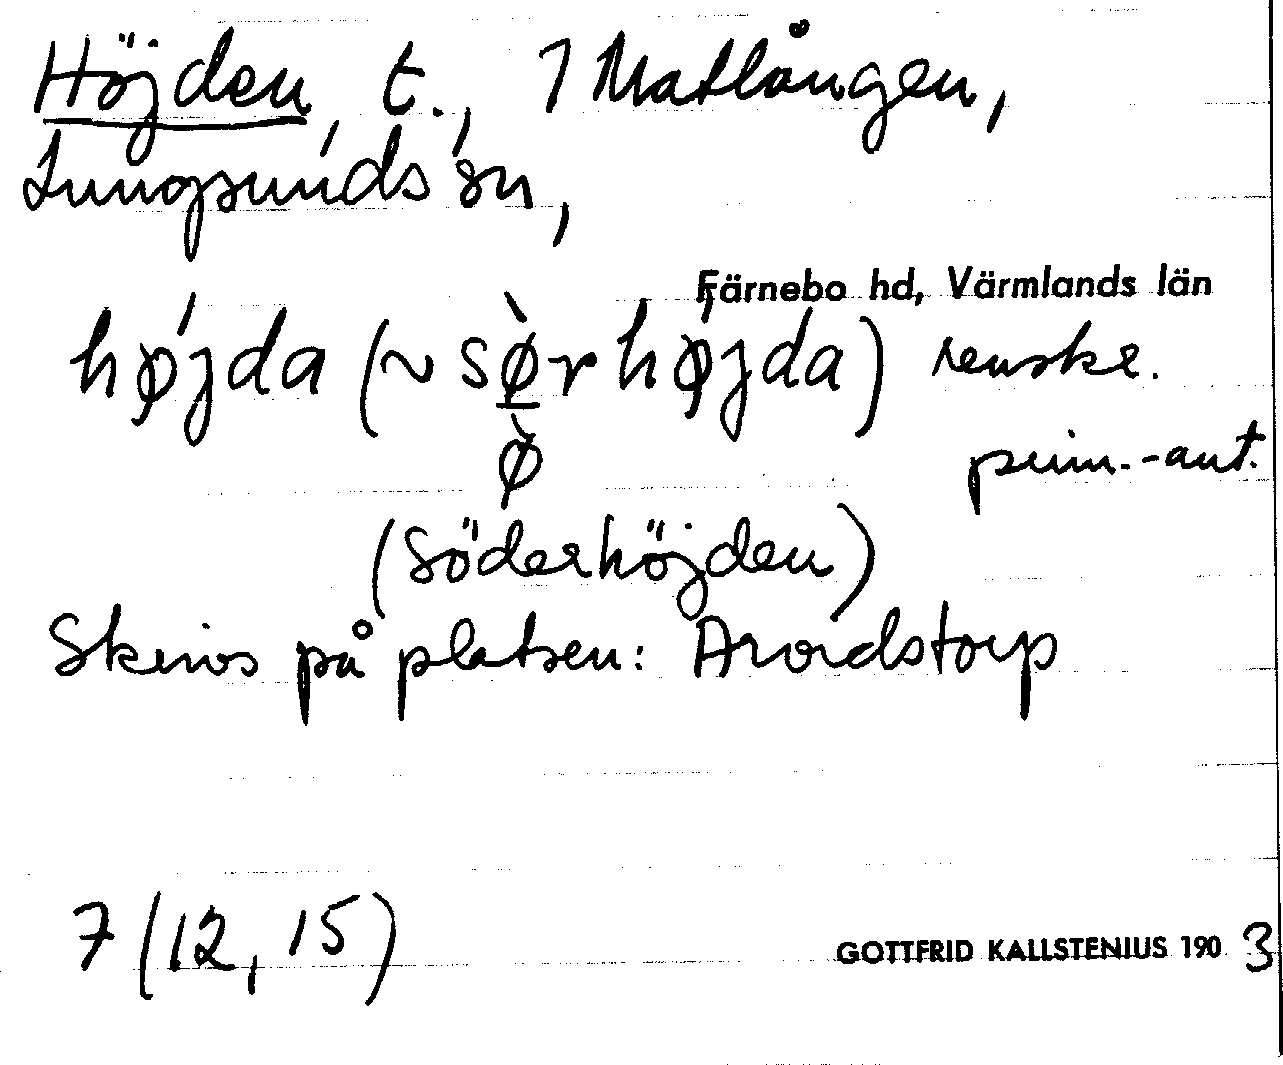 Höjden, t., 7 Matlången,
Lungsunds sn,
Färnebo hd, Värmlands län
hǿjda (~ sø̀rhǿjda)
ø̀
(Söderhöjden)
Skrivs på platsen: Arvidstorp
7 (12, 15)
GOTTFRID KALLSTENIUS 1903